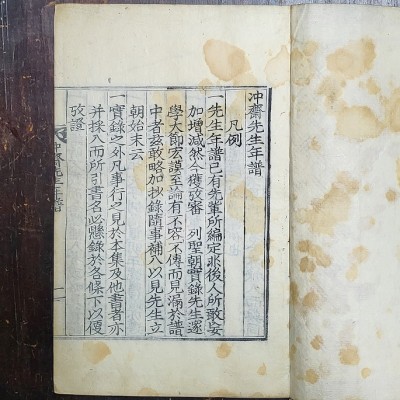 冲齋先生年譜
凡例
一先生年譜已有先輩所編定非後人所敢妄
加增減然今獲攷審 列聖朝實錄先生遷
學大節宏謨至論有不容不傳而見漏於譜
中者玆敢略加抄錄隨事補入以見先生立
朝始末云
一實錄之外凡事行之見於本集及他書者亦
并採入而所引書名必懸錄於各條下以便
攷證
冲齋先生年譜 一